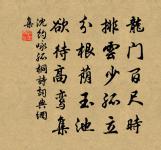 龍門百尺時
排雲少孤立
分根蔭玉池
欲待高鸞集
沈約咏孤桐詩詞典網
集